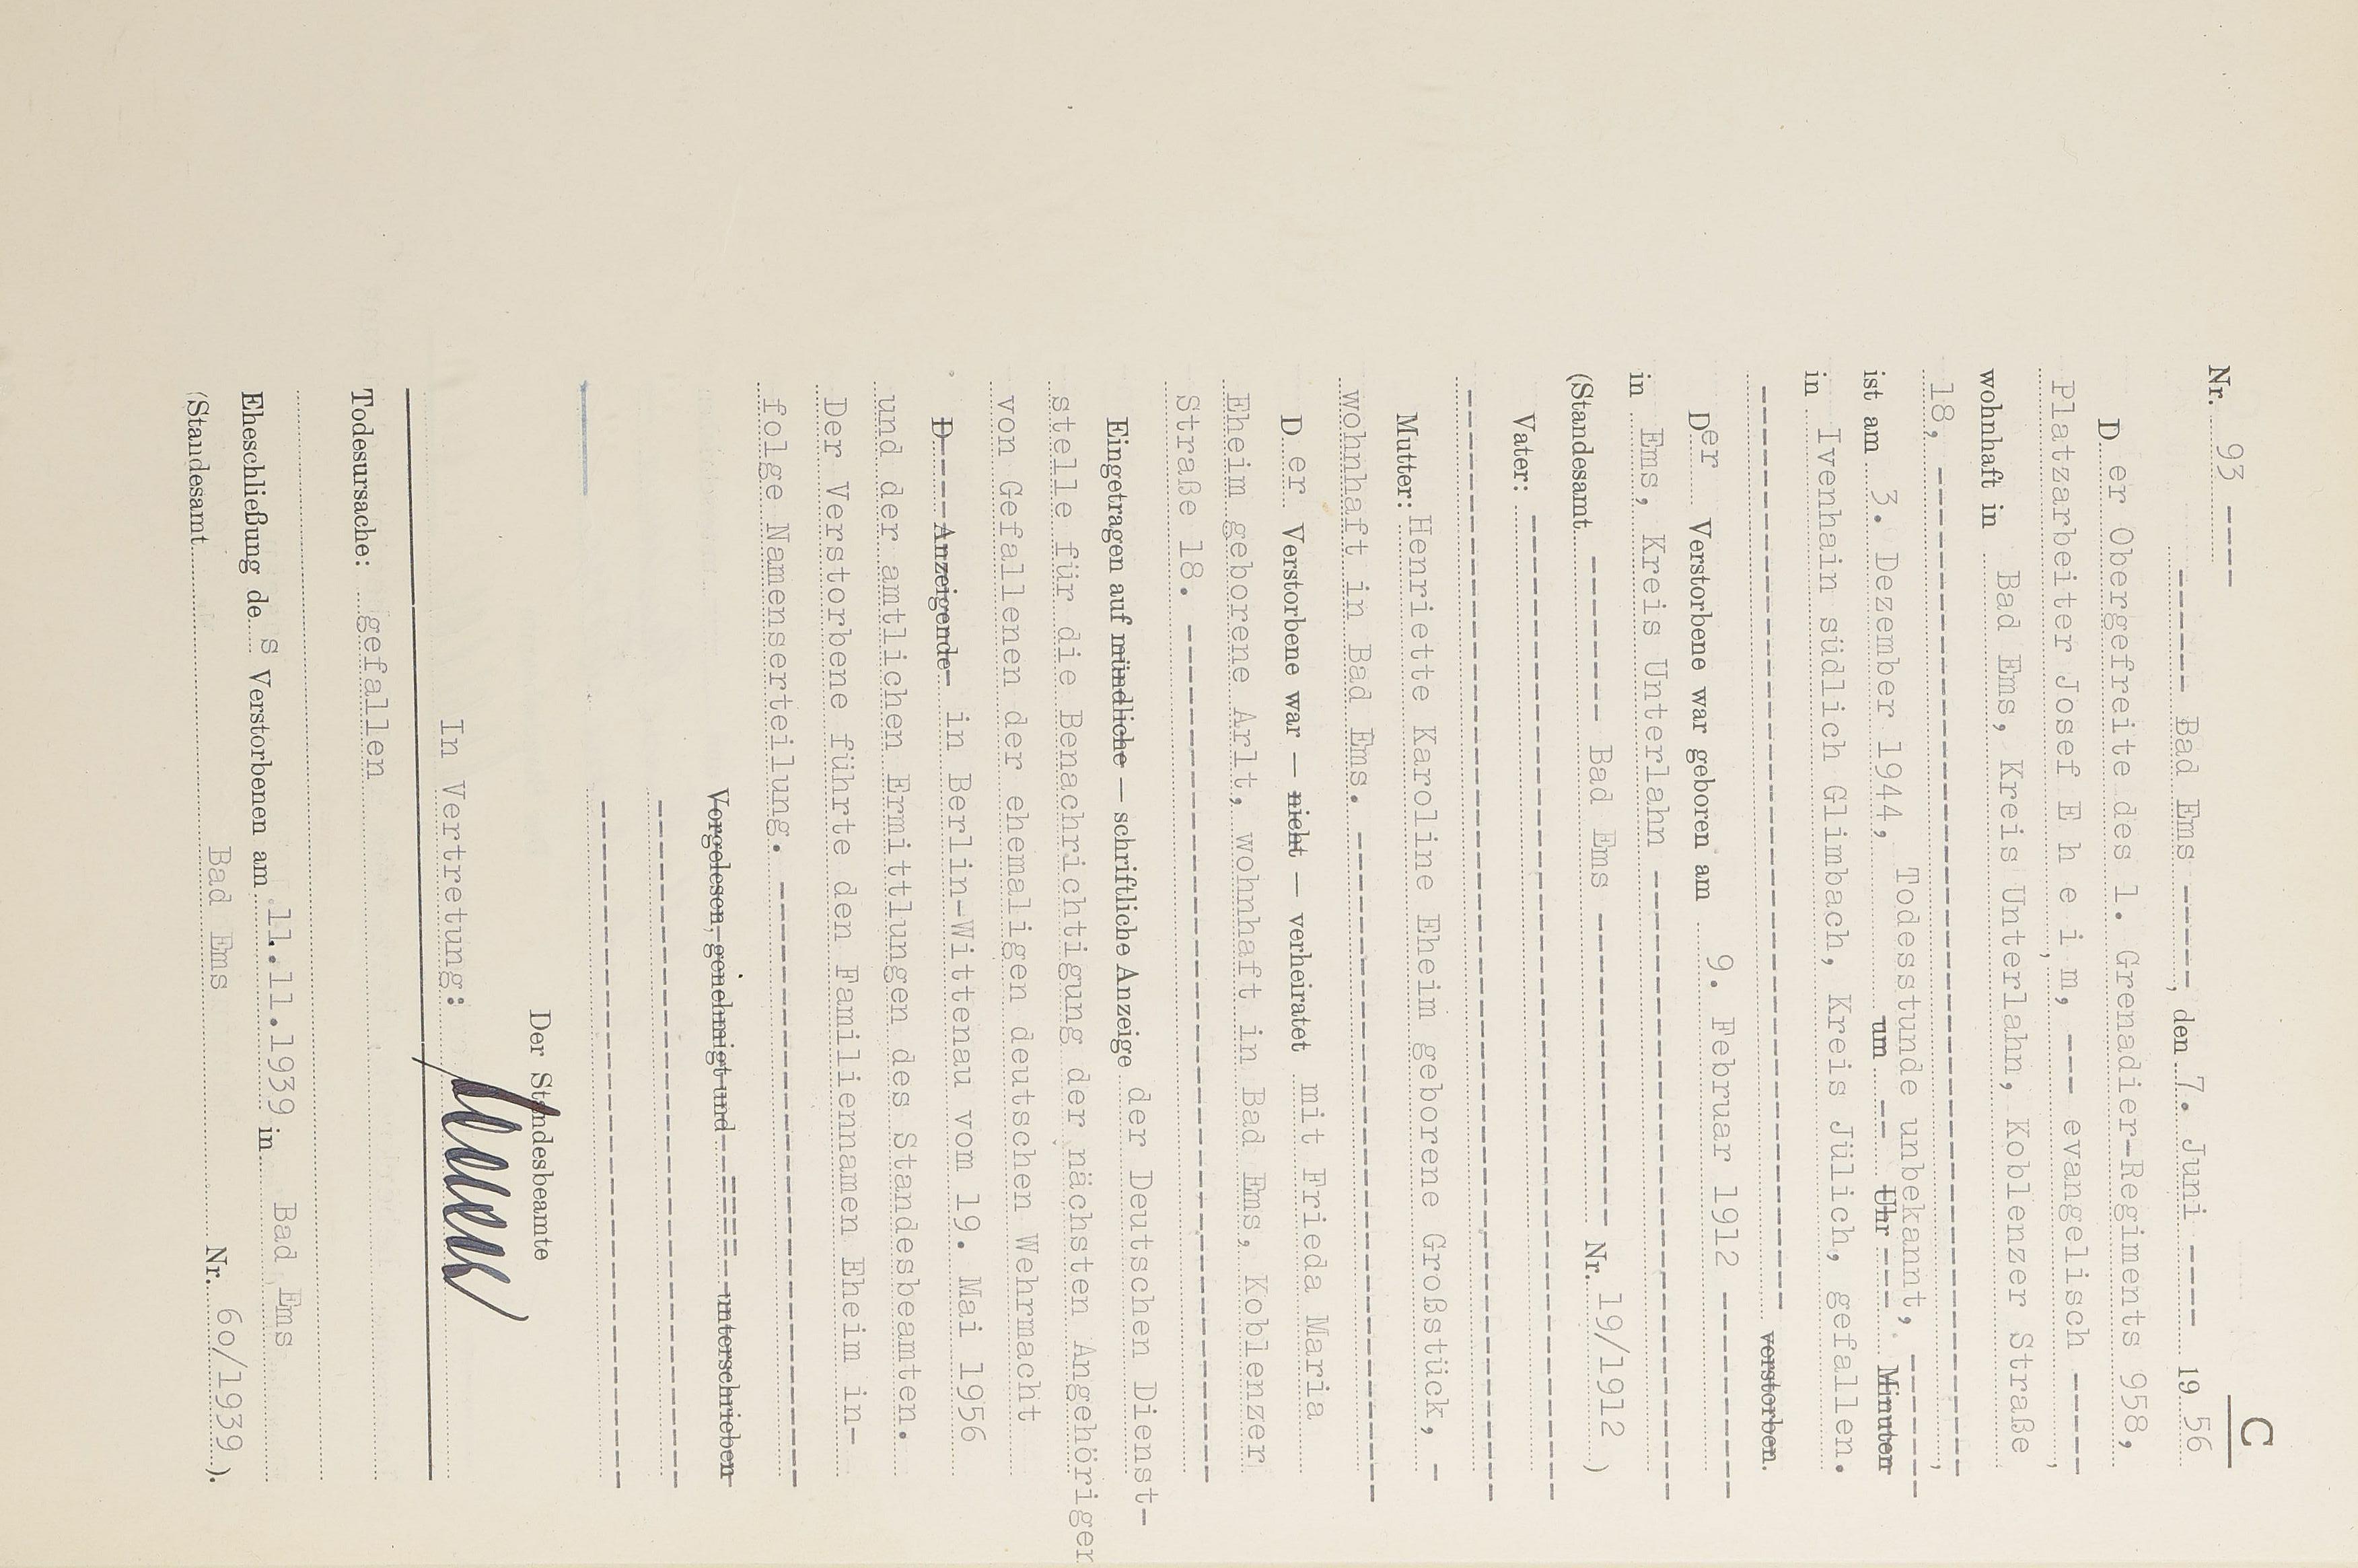 C
Nr. 93 ----
------ Bad Ems -----, den 7. Juni ---- 19 56
Der Obergefreite des 1. Grenadier-Regiments 958,
Platzarbeiter Josef E h e i m, --- evangelisch -----,
wohnhaft in Bad Ems, Kreis Unterlahn, Koblenzer Straße
18, ------------------------------------------------,
ist am 3. Dezember 1944, Todesstunde unbekannt, -------
um --- Uhr --- Minuten
in Ivenhain südlich Glimbach, Kreis Jülich, gefallen.
------------------------------------------------ verstorben.
Der Verstorbene war geboren am 9. Februar 1912 ----------
in Ems, Kreis Unterlahn --------------------------------
(Standesamt -------- Bad Ems --------------- Nr. 19/1912 )
Vater: ------------------------------------------------
------------------------------------------------------
Mutter: Henriette Karoline Eheim geborene Großstück, -
wohnhaft in Bad Ems. ----------------------------------
Der Verstorbene war — nicht — verheiratet mit Frieda Maria
Eheim geborene Arlt, wohnhaft in Bad Ems, Koblenzer
Straße 18. --------------------------------------------
Eingetragen auf mündliche — schriftliche Anzeige der Deutschen Dienst-
stelle für die Benachrichtigung der nächsten Angehörigen
von Gefallenen der ehemaligen deutschen Wehrmacht
D---- Anzeigende- in Berlin-Wittenau vom 19. Mai 1956
und der amtlichen Ermittlungen des Standesbeamten.
Der Verstorbene führte den Familiennamen Eheim in-
folge Namenserteilung. --------------------------------
Vorgelesen, genehmigt und ------- unterschrieben
----------------------------------
----------------------------------
Der Standesbeamte
In Vertretung:
Todesursache: gefallen
Eheschließung des Verstorbenen am 11.11.1939 in Bad Ems
(Standesamt Bad Ems Nr. 60/1939 ).